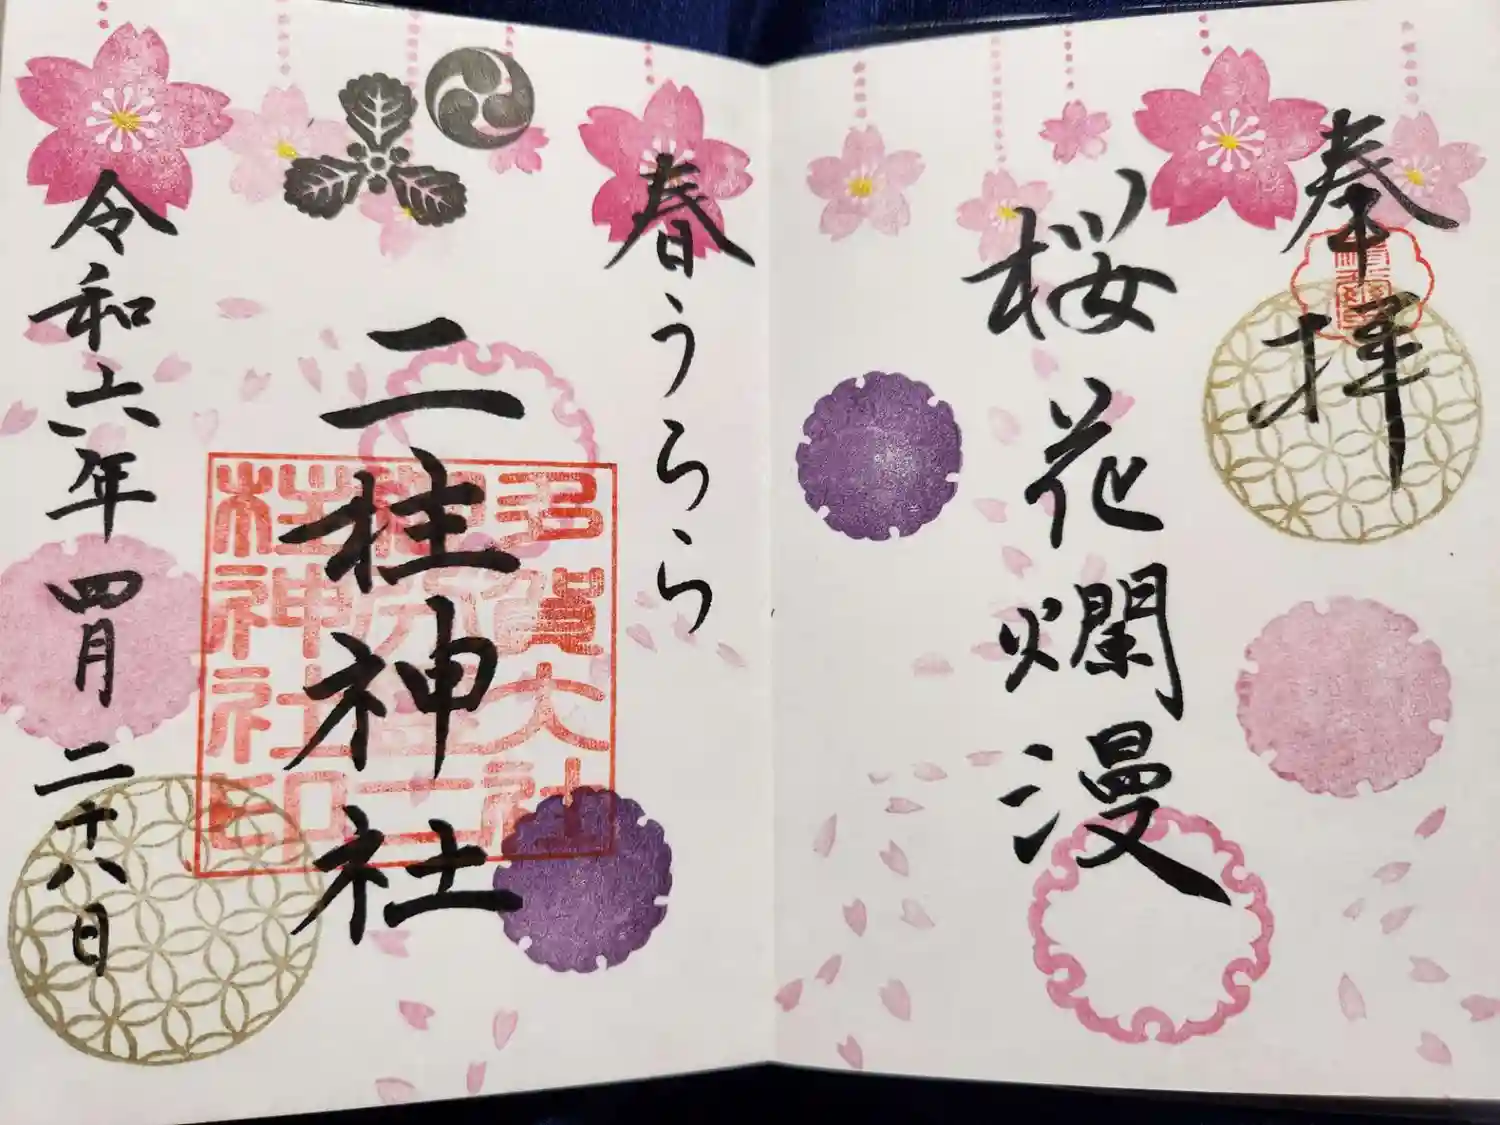 奉拝
桜花爛漫
春うらら
二柱神社
多賀大社
御分霊二
柱神社印
令和六年四月二十八日